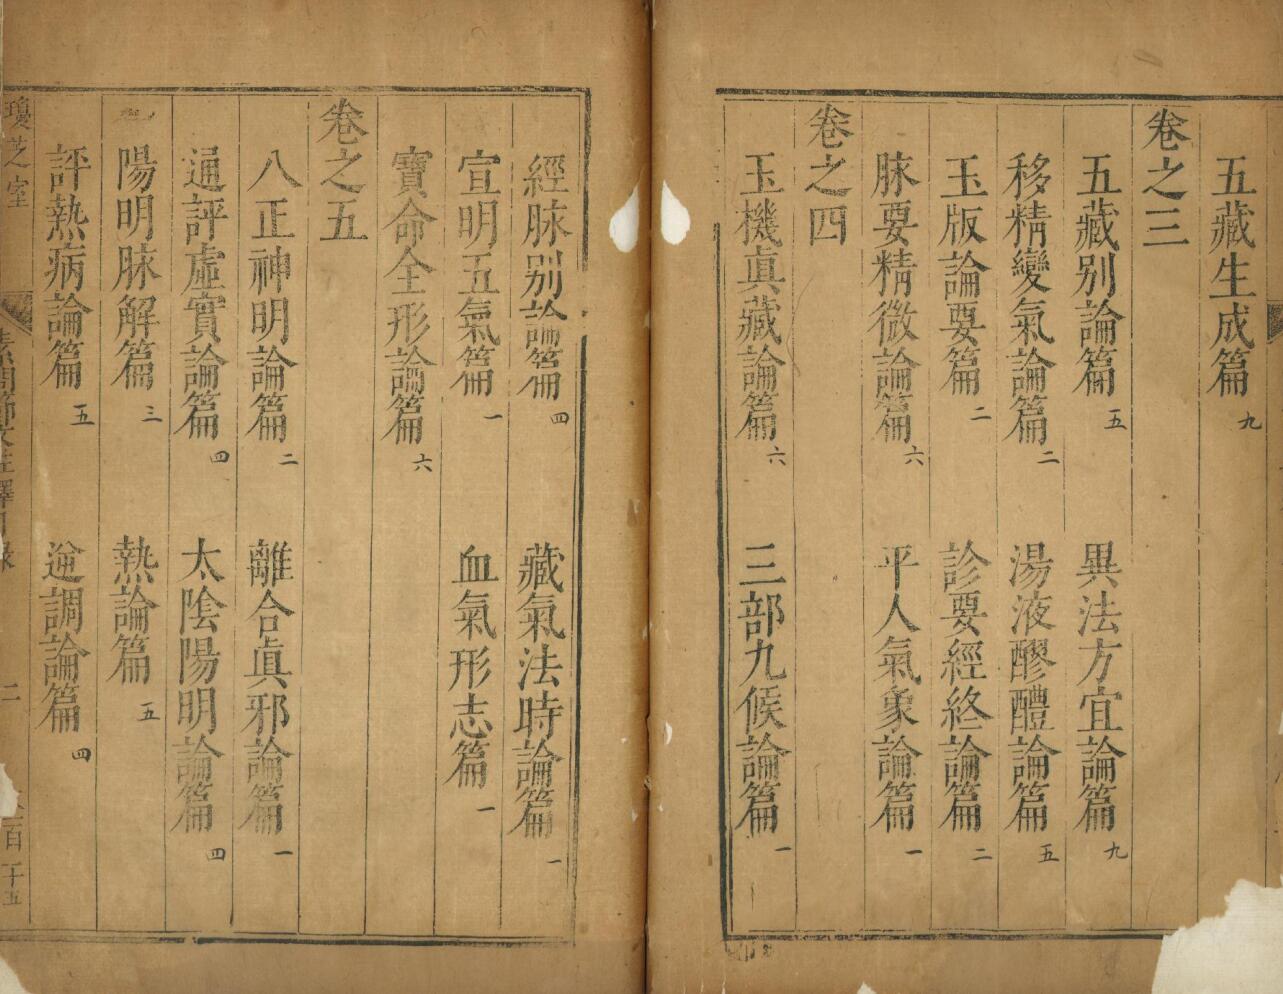 五藏生成篇九
卷之三
五藏别論篇五 異法方宜論篇九
移精變氣論篇二 湯液醪醴論篇五
玉版論要篇二 診要經終論篇二
脉要精微論篇六 平人氣象論篇一
卷之四
玉機眞藏論篇六 三部九候論篇一
經脉别論篇四 藏氣法時論篇一
宣明五氣篇一 血氣形志篇一
寶命全形論篇六
卷之五
八正神明論篇二 離合眞邪論篇一
通評虛實論篇四 太陰陽明論篇四
陽明脉解篇三 熱論篇五
評熱病論篇五 逆調論篇四
瓊芝室 素問節文註釋目錄 二